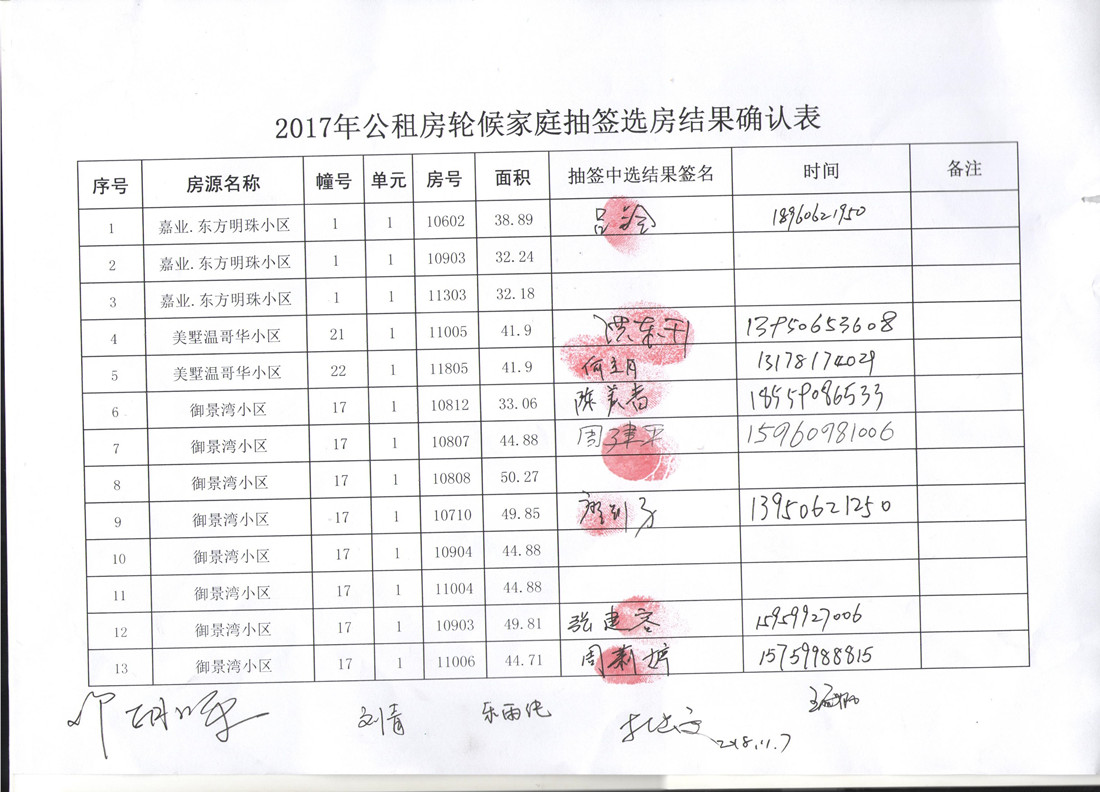 2017年公租房轮候家庭抽签选房结果确认表
序号 房源名称 幢号 单元 房号 面积 抽签中选结果签名 时间 备注
1 嘉业.东方明珠小区 1 1 10602 38.89 18960621950
2 嘉业.东方明珠小区 1 1 10903 32.24
3 嘉业.东方明珠小区 1 1 11303 32.18
4 美墅温哥华小区 21 1 11005 41.9 13950653608
5 美墅温哥华小区 22 1 11805 41.9 13178174029
6 御景湾小区 17 1 10812 33.06 陈美春 18559086533
7 御景湾小区 17 1 10807 44.88 周建平 15960981006
8 御景湾小区 17 1 10808 50.27
9 御景湾小区 17 1 10710 49.85 13950621250
10 御景湾小区 17 1 10904 44.88
11 御景湾小区 17 1 11004 44.88
12 御景湾小区 17 1 10903 49.81 张建容 15959927006
13 御景湾小区 17 1 11006 44.71 周莉婷 15759988815
刘青
2018.11.7